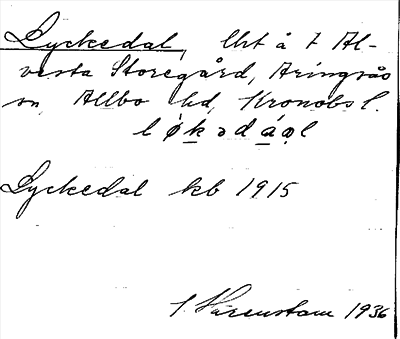 Lyckedal, lht å 7 Al-
vesta Storegård, Aringsås
sn, Allbo hd, Kronobs l.
l ǿk ə d á ạl
Lyckedal kb 1915
1936